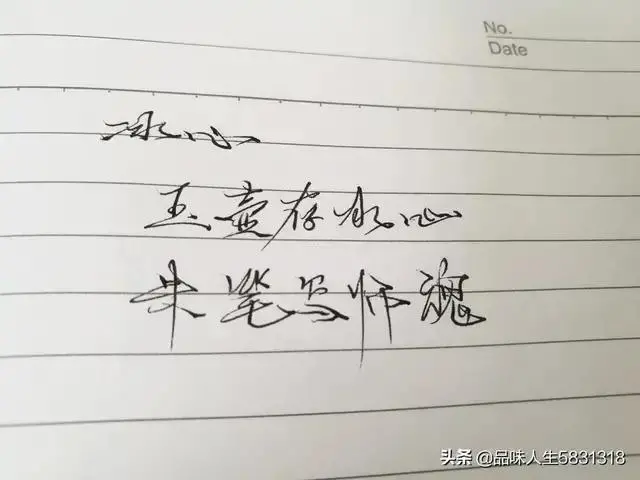 No.
Date
冰心
玉壶存冰心
朱笔写师魂
头条 @品味人生5831318